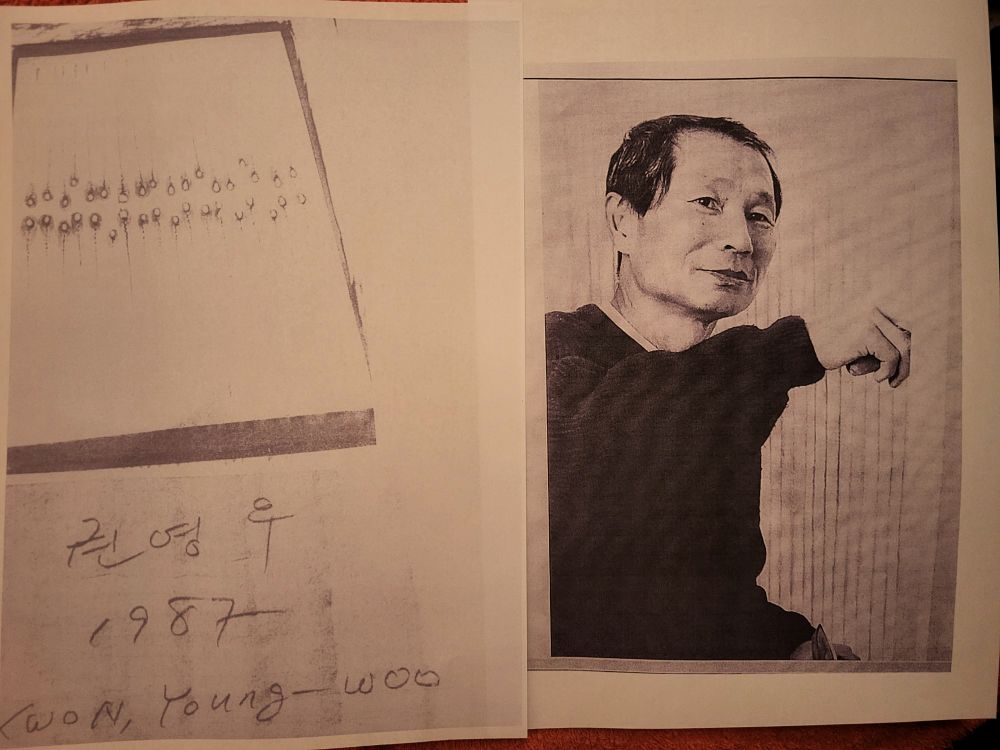 권영우
1987
KWON, Young-WOO